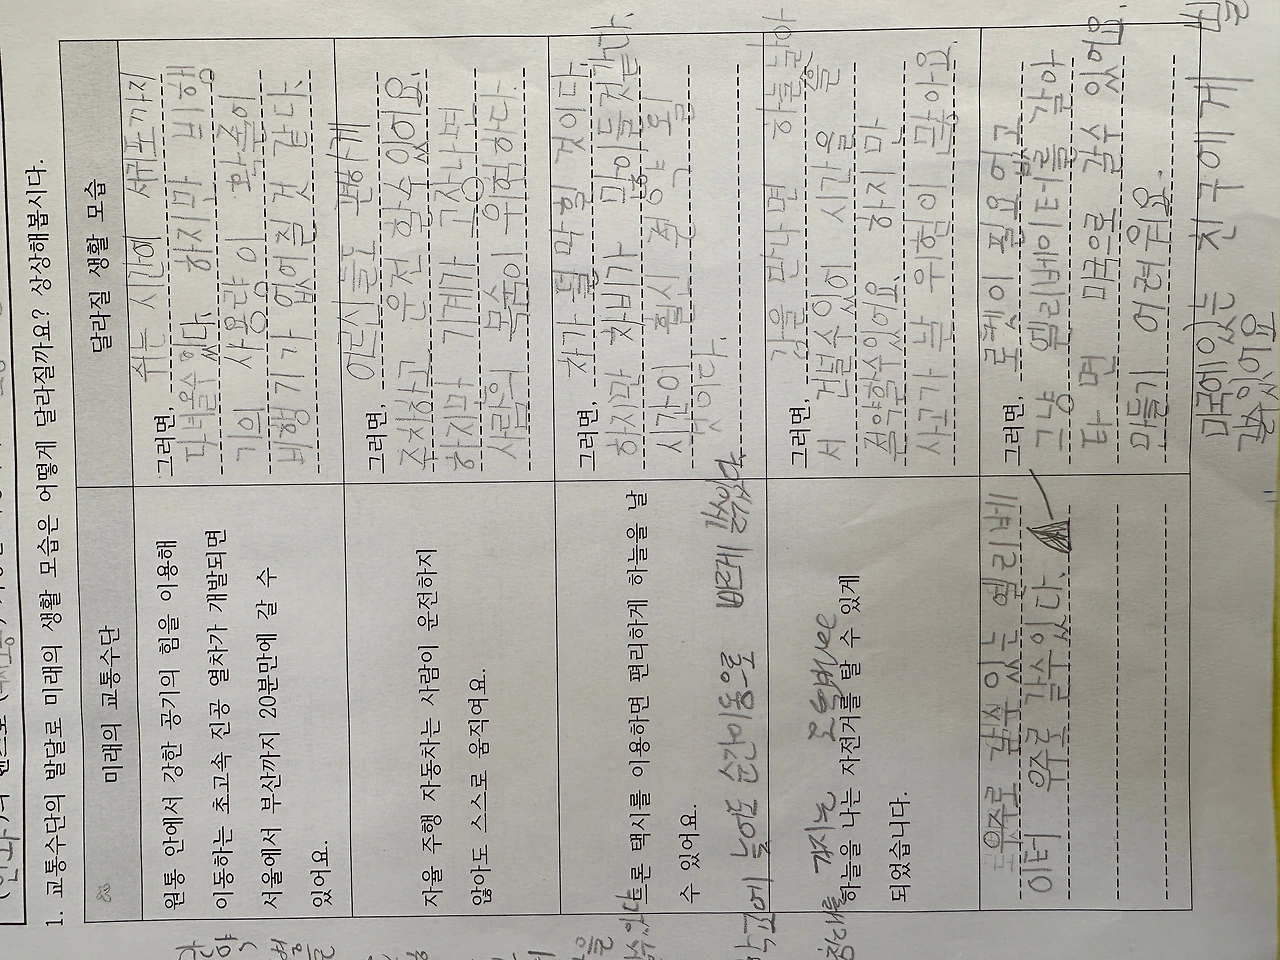 1. 교통수단의 발달로 미래의 생활 모습은 어떻게 달라질까요? 상상해봅시다.
미래의 교통수단
달라질 생활 모습
원통 안에서 강한 공기의 힘을 이용해
이동하는 초고속 진공 열차가 개발되면
서울에서 부산까지 20분만에 갈 수
있어요.
그러면, 쉬는 시간에 세포까지
다녀올수 있다. 하지만 비행
기의 사용량이 확 줄어
비행기가 없어질 것 같다.
자율 주행 자동차는 사람이 운전하지
않아도 스스로 움직여요.
그러면, 어르신들도 편하게
주차하고 운전 할수 있어요.
하지만 기계가 고장나면
사람의 목숨이 위험하다.
드론 택시를 이용하면 편리하게 하늘을 날
수 있어요.
그러면, 차가 덜 막힐 것이다.
하지만 차비가 많이들것같다.
시간이 훨씬 절약 될
것이다.
학교에 늦어도 순간이동으로 빠르게 갈수있다.
하늘을 나는 자전거를 탈 수 있게
되었습니다.
그러면, 강을 만나면 하늘을 날아
서 건널수있어 시간을
절약할수있어요. 하지만
사고가 날 위험이 많아요.
우주로 갈수 있는 엘리베
이터 우주로 갈수있다.
그러면, 로켓이 필요 없고
그냥 엘리베이터를 갈아
타면 미국으로 갈수 있어요.
만들기 어려워요.
미국에있는 친구에게
갈수있어요